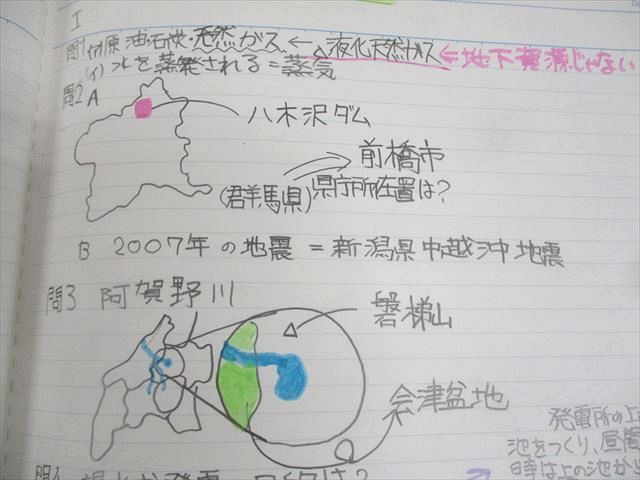 I
問1 (ア) 原油・石炭・天然ガス ← 液化天然ガス ← 地下資源じゃない
(イ) 水を蒸発される = 蒸気
問2 A
八木沢ダム
前橋市
(群馬県) 県庁所在置は?
B 2007年の地震 = 新潟県中越沖地震
問3 阿賀野川
磐梯山
会津盆地
発電所の上
池をつくり、昼間
時は上の池から